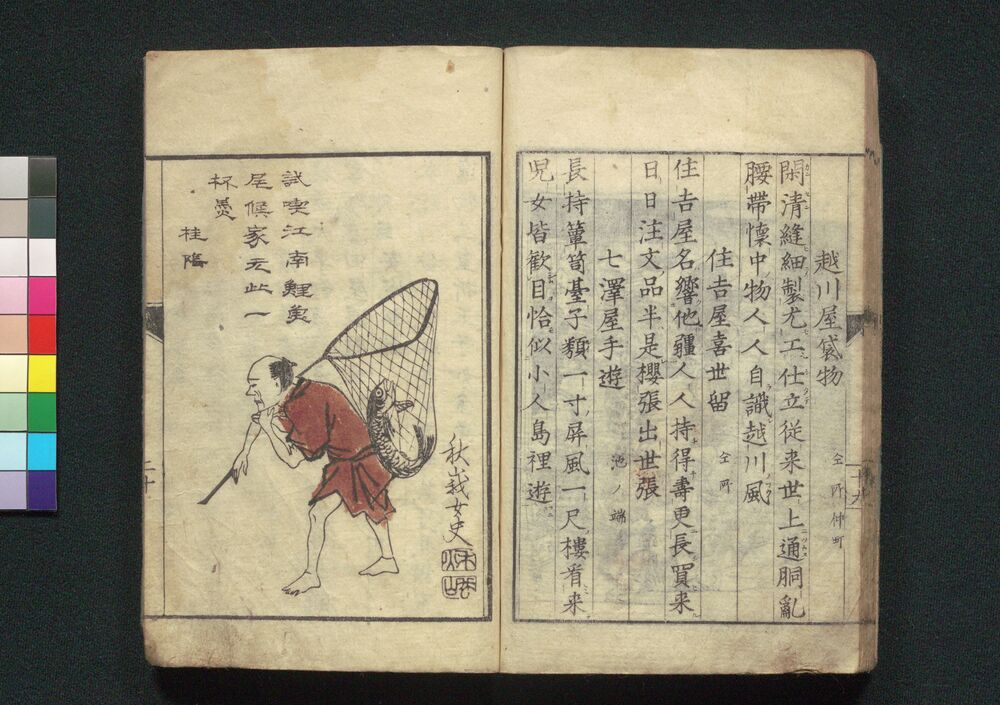 越川屋袋物 仝所仲町
閑清縫細製尤工仕立従来世上通胴亂
腰帶懐中物人人自識越川風
住吉屋喜世留 仝所
住吉屋名響他疆人人持得壽更長買来
日日注文品半是櫻張出世張
七澤屋手遊 池ノ端
長持簞笥臺子類一寸屏風一尺樓看来
児女皆歓目恰似小人島裡遊
十九
試喫江南鯉魚
尾候家无此一
杯羹
桂陰
秋莪女史
二十